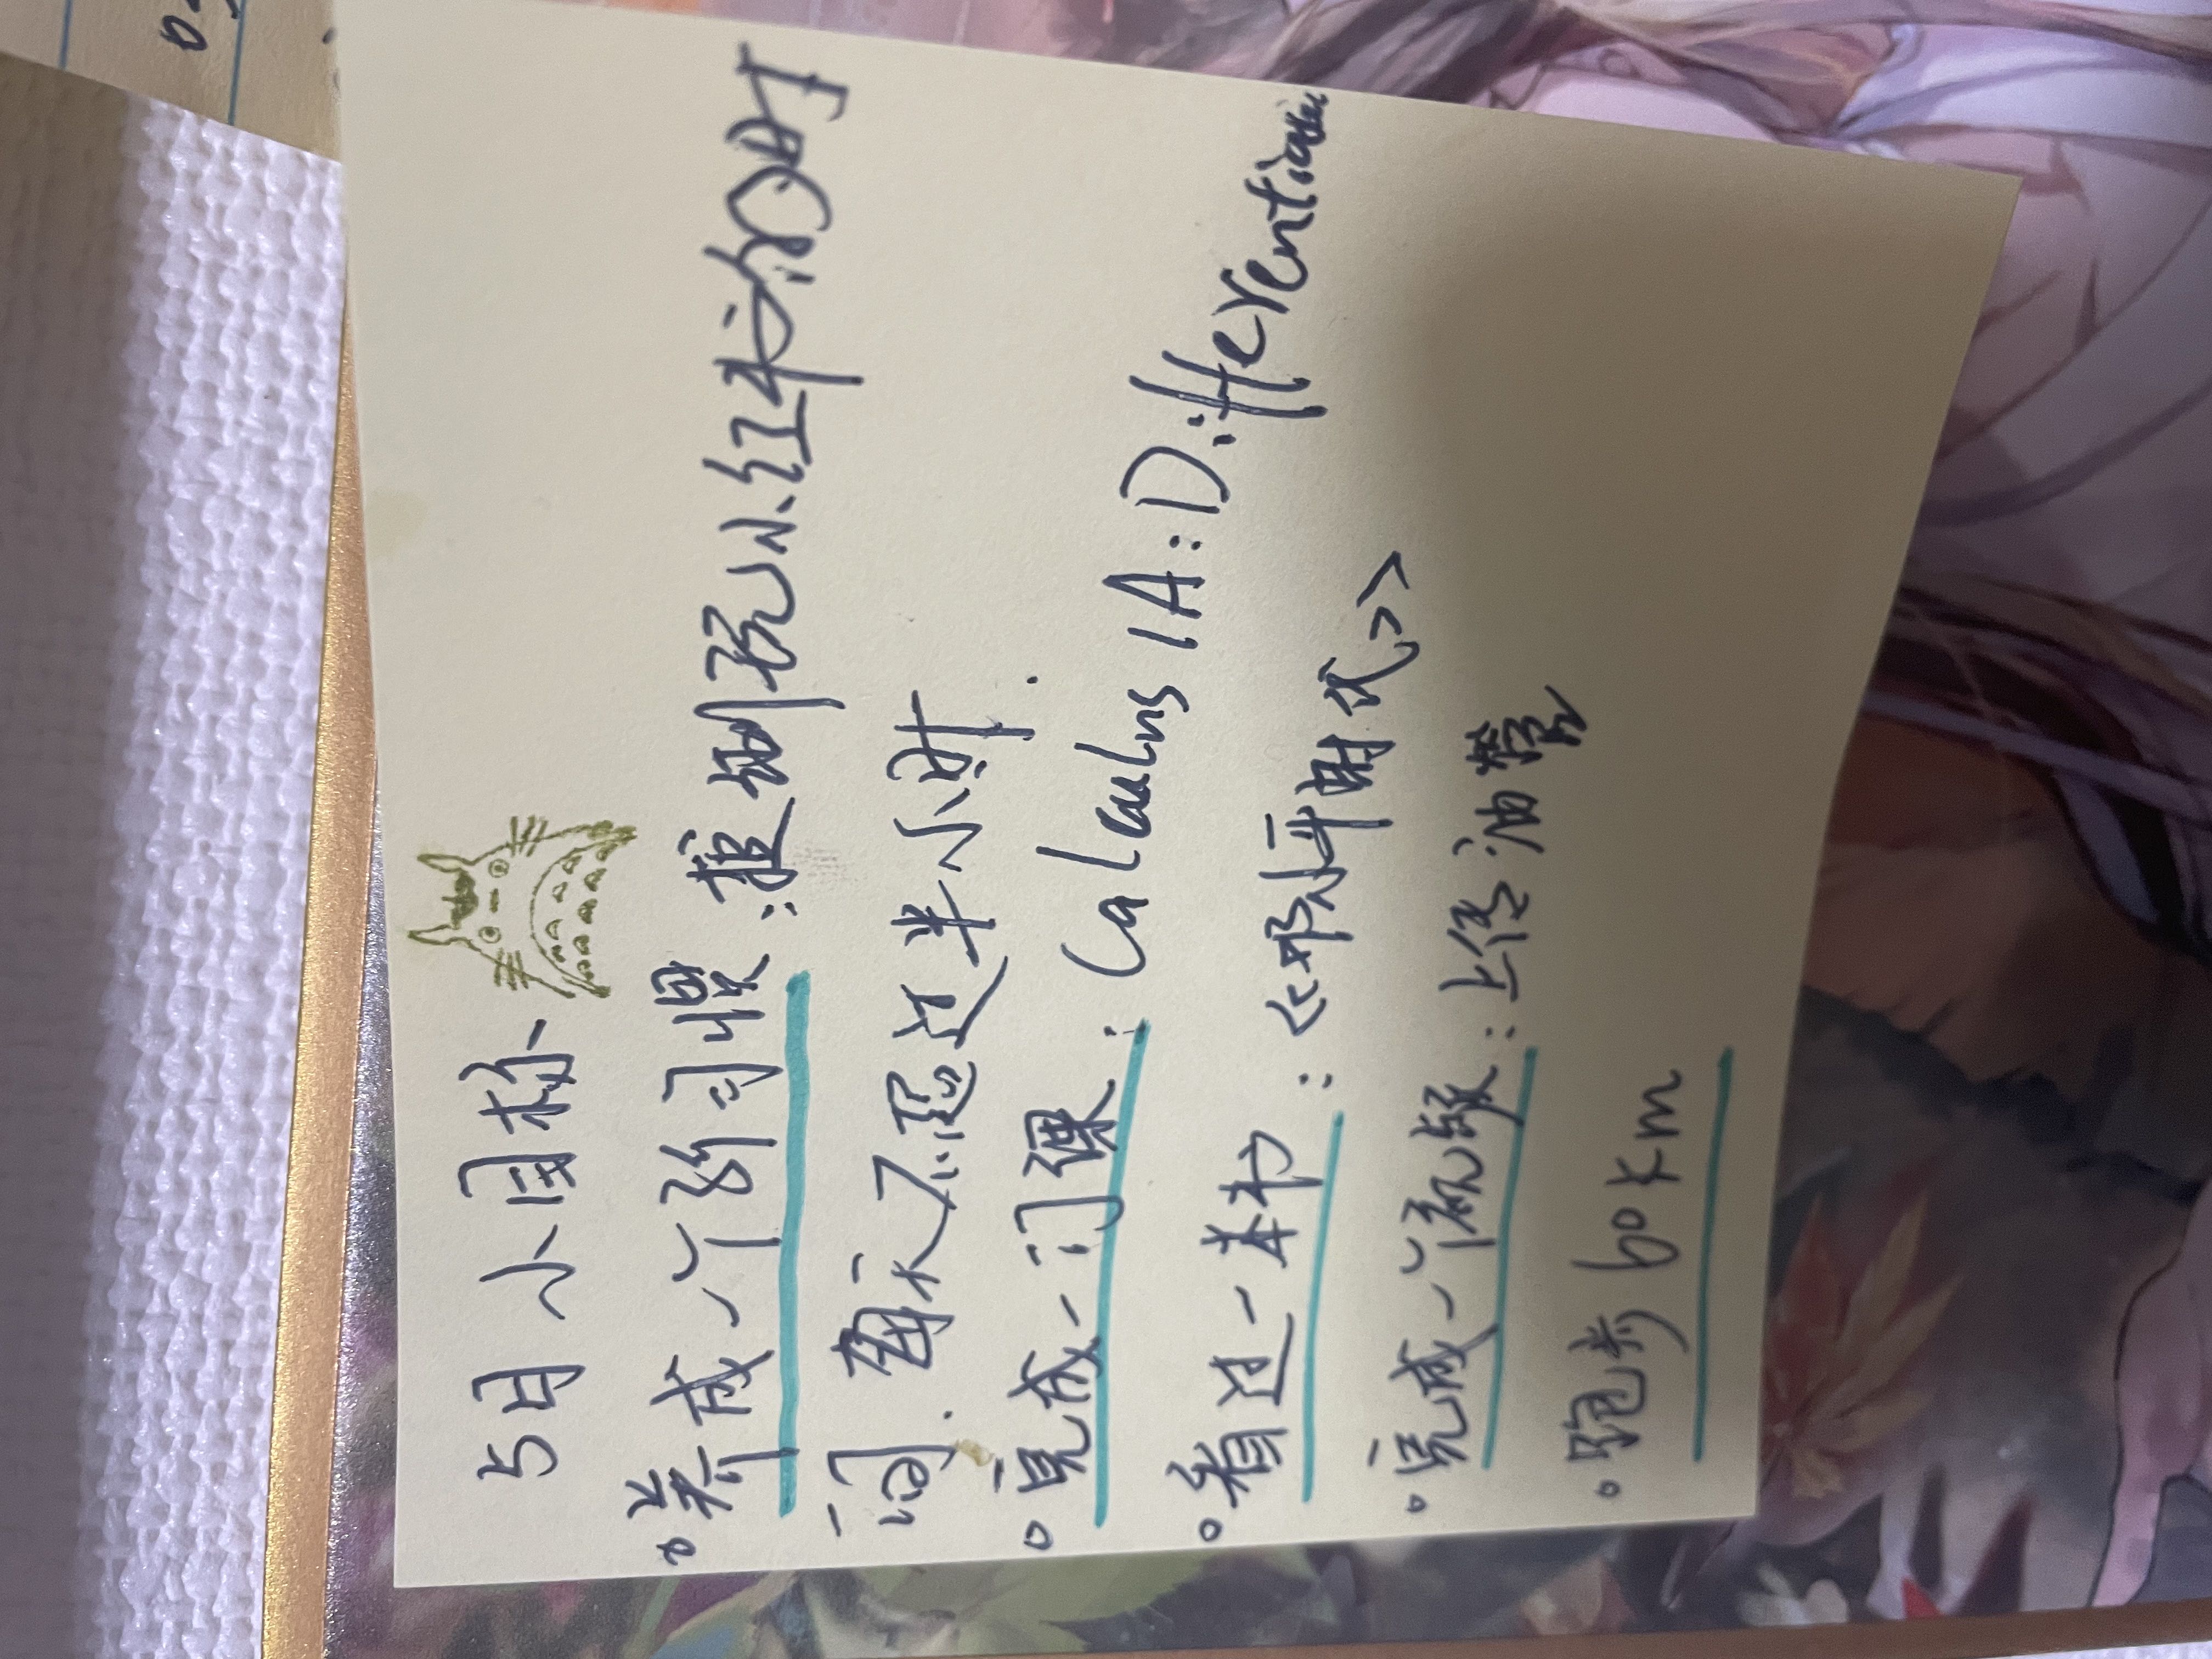 5月小目标
养成一个新习惯:控制玩小红书的时
间.每天不超过半小时.
完成一门课:Calculus 1A:Differentiation
看过一本书:《邓小平时代》
完成一个视频:上传油管
跑步60km